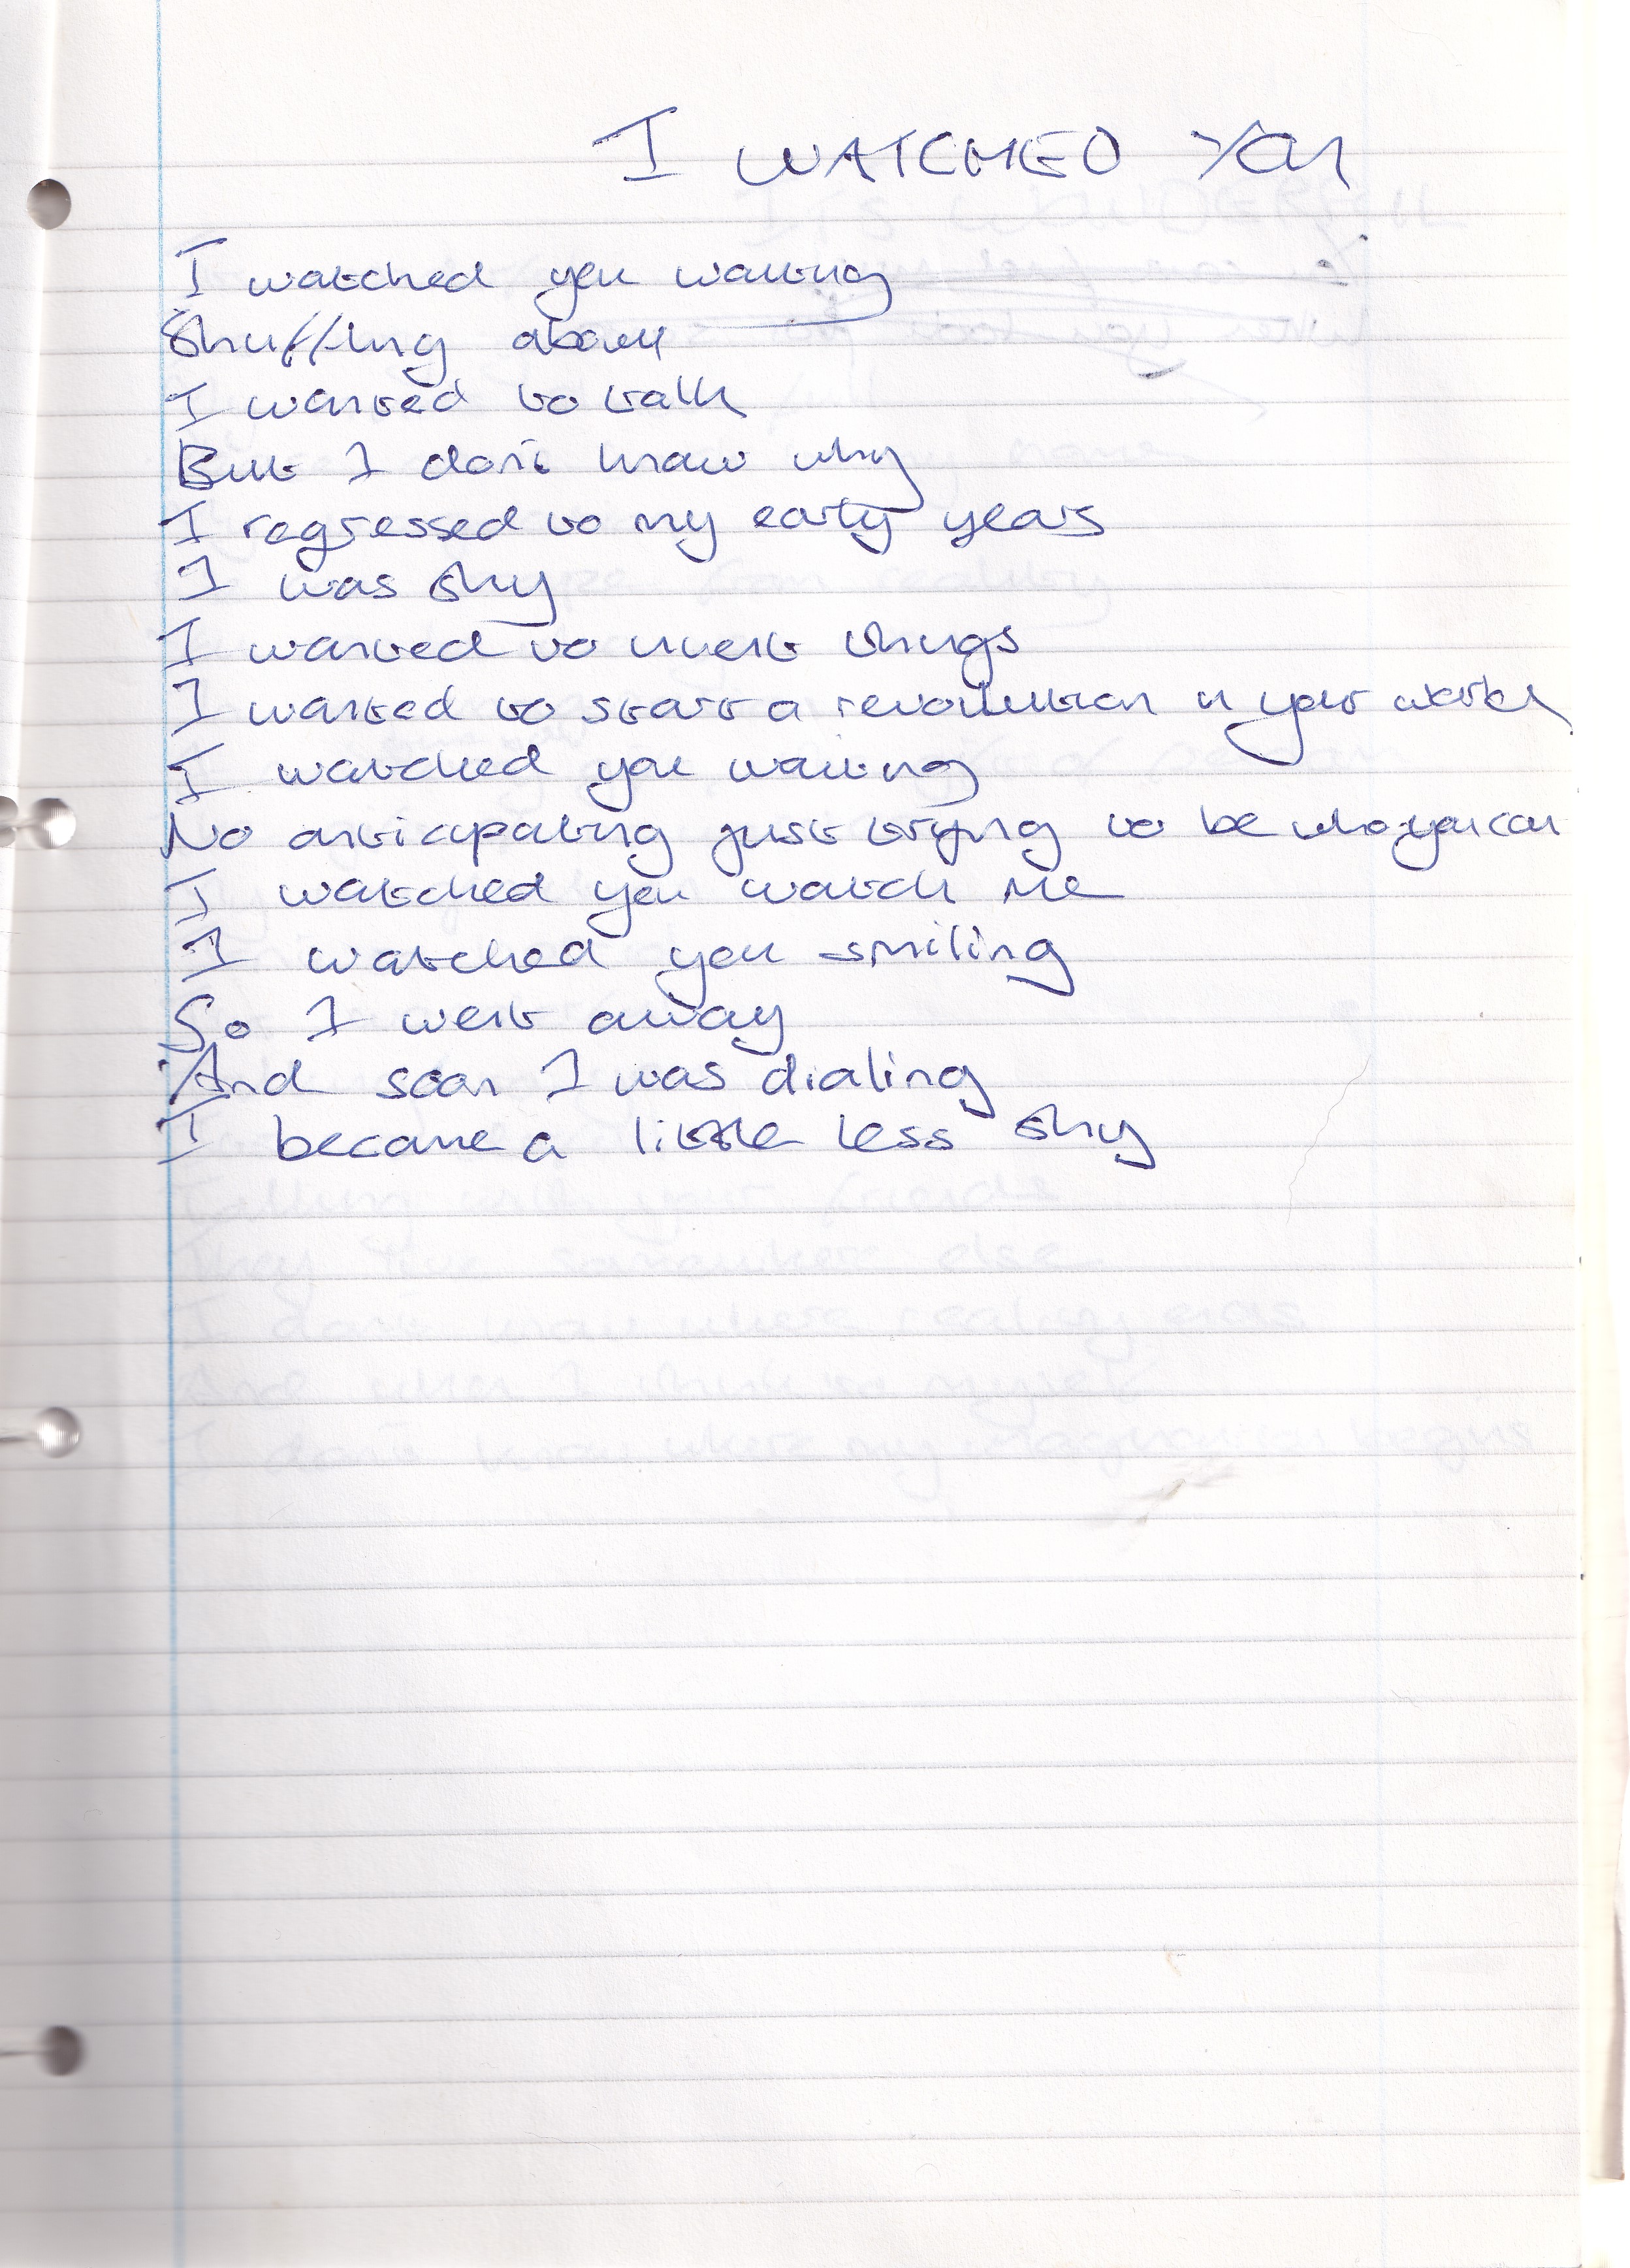 I WATCHED YOU
I watched you waiting
Shuffling about
I wanted to talk
But I don't know why
I regressed to my early years
I was shy
I wanted to invent things
I wanted to start a revolution in your world
I watched you waiting
No anticipating just trying to be who you can
I watched you watch me
I watched you smiling
So I went away
And soon I was dialing
I became a little less shy